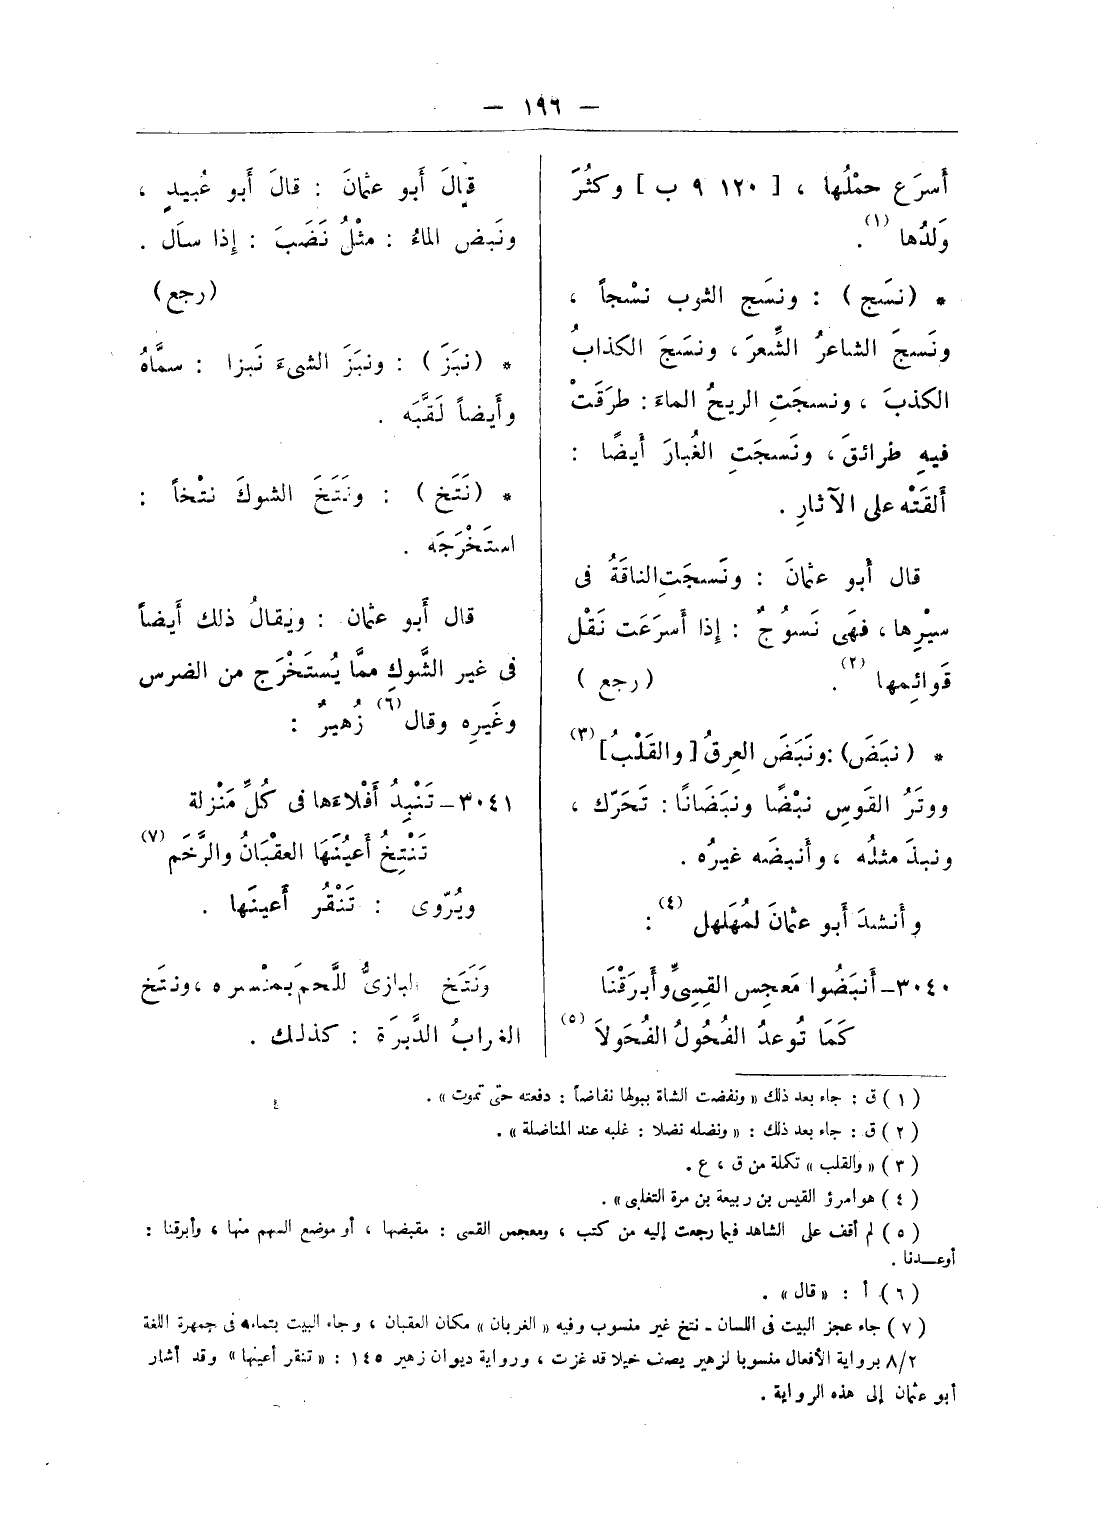 — ١٩٦ —
أسرَع حمْلُها ، [ ١٢٠ ٩ ب ] وكثُرَ
وَلدُها (١) .
* (نسَج ) : ونسَج الثوب نسْجاً ،
ونَسجَ الشاعرُ الشِّعرَ ، ونسَجَ الكذابُ
الكذبَ ، ونسجَتِ الريحُ الماءَ : طرقَتْ
فيهِ طرائقَ ، ونَسجَتِ الغُبارَ أيضًا :
ألقَتْه على الآثارِ .
قال أبو عثمانَ : ونَسجَتِ الناقَةُ فى
سيْرِها ، فهَى نَسوُجٌ : إذا أسرَعَت نَقْل
قَوائِمها (٢) . ( رجع )
* ( نبَضَ) : ونَبَضَ العِرقُ [ والقَلْبُ ] (٣)
ووتَرُ القَوسِ نبْضًا ونبَضَانًا : تَحَرّك ،
ونبذَ مثلُه ، وأنبضَه غيرُه .
وأنشدَ أبو عثمانَ لمُهَلهل (٤) :
٣٠٤٠ – أنبَضُوا مَعجِس القِسِىِّ وأبرَقْنَا
كَمَا تُوعدُ الفُحُولُ الفُحَولاَ (٥)
قالَ أبو عثمانَ : قالَ أبو عُبيدٍ ،
ونَبض الماءُ : مثْلُ نَضَبَ : إذا سال .
(رجع)
* (نبَزَ ) : ونبَزَ الشىءَ نَبزا : سمَّاهُ
وأيضاً لَقَّبَه .
* (نَتَخ ) : ونَتَخَ الشوكَ نتْخاً :
استَخْرَجَه .
قال أبو عثمان : ويُقالُ ذلك أيضاً
فى غير الشَّوكِ ممَّا يُستَخْرَج من الضرس
وغَيرِه وقال (٦) زُهيرٌ :
٣٠٤١ – تَنْبِذُ أفْلاءَها فى كُلِّ مَنْزلة
تَنْتِخُ أعيُنَهَا العقبَانُ والرَّخَم (٧)
ويُرْوى : تَنْقُر أعينَها .
وَنَتَخ البازىُّ للَّحمَ بمنْسره ، ونتَخ
الغرابُ الدَّبرَة : كذلك .
( ١ ) ق : جاء بعد ذلك « ونفضت الشاة ببولها نفاضاً : دفعته حتى تموت » .
( ٢ ) ق : جاء بعد ذلك : « ونضله نضلا : غلبه عند المناضلة » .
( ٣ ) « والقلب » تكملة من ق ، ع .
( ٤ ) هو امرؤ القيس بن ربيعة بن مرة التغلبى » .
( ٥ ) لم أقف على الشاهد فيما رجعت إليه من كتب ، ومعجس القسى : مقبضها ، أو موضع السهم منها ، وأبرقنا :
أوعدنا .
( ٦ ) أ : « قال » .
( ٧ ) جاء عجز البيت فى اللسان – نتخ غير منسوب وفيه « الغربان » مكان العقبان ، وجاء البيت بتمامه فى جمهرة اللغة
٨/٢ برواية الأفعال منسوبا لزهير يصف خيلا قد غزت ، ورواية ديوان زهير ١٤٥ : « تنقر أعينها » وقد أشار
أبو عثمان إلى هذه الرواية .